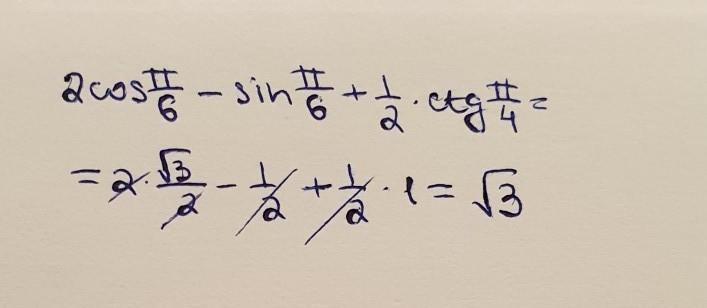 2cos π/6 − sin π/6 + 1/2 · ctg π/4 =
= 2 · √3/2 − 1/2 + 1/2 · 1 = √3